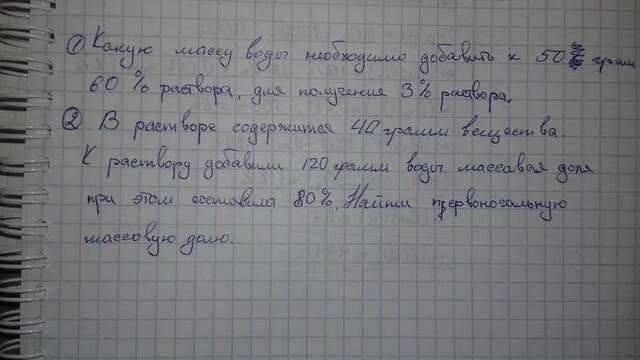 ① Какую массу воды необходимо добавить к 50 грам
60 % раствора, для получения 3 % раствора.
② В растворе содержится 40 грамм вещества.
К раствору добавили 120 грамм воды массавая доля
при этом составила 80 %. Найти первоночальную
массовую долю.